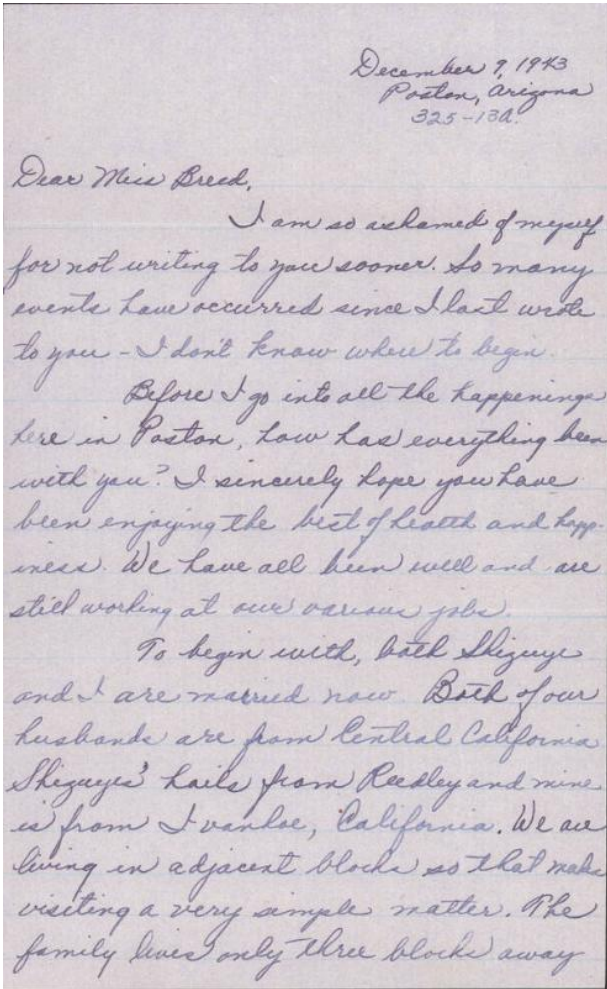 December 9, 1943
Poston, Arizona
325-13A.
Dear Miss Breed,
I am so ashamed of myself
for not writing to you sooner. So many
events have occurred since I last wrote
to you - I don't know where to begin.
Before I go into all the happenings
here in Poston, how has everything been
with you? I sincerely hope you have
been enjoying the best of health and happ-
iness. We have all been well and are
still working at our various jobs.
To begin with, both Shizuye
and I are married now. Both of our
husbands are from Central California
Shizuyes' hails from Reedley and mine
is from Ivanhoe, California. We are
living in adjacent blocks so that makes
visiting a very simple matter. The
family lives only three blocks away